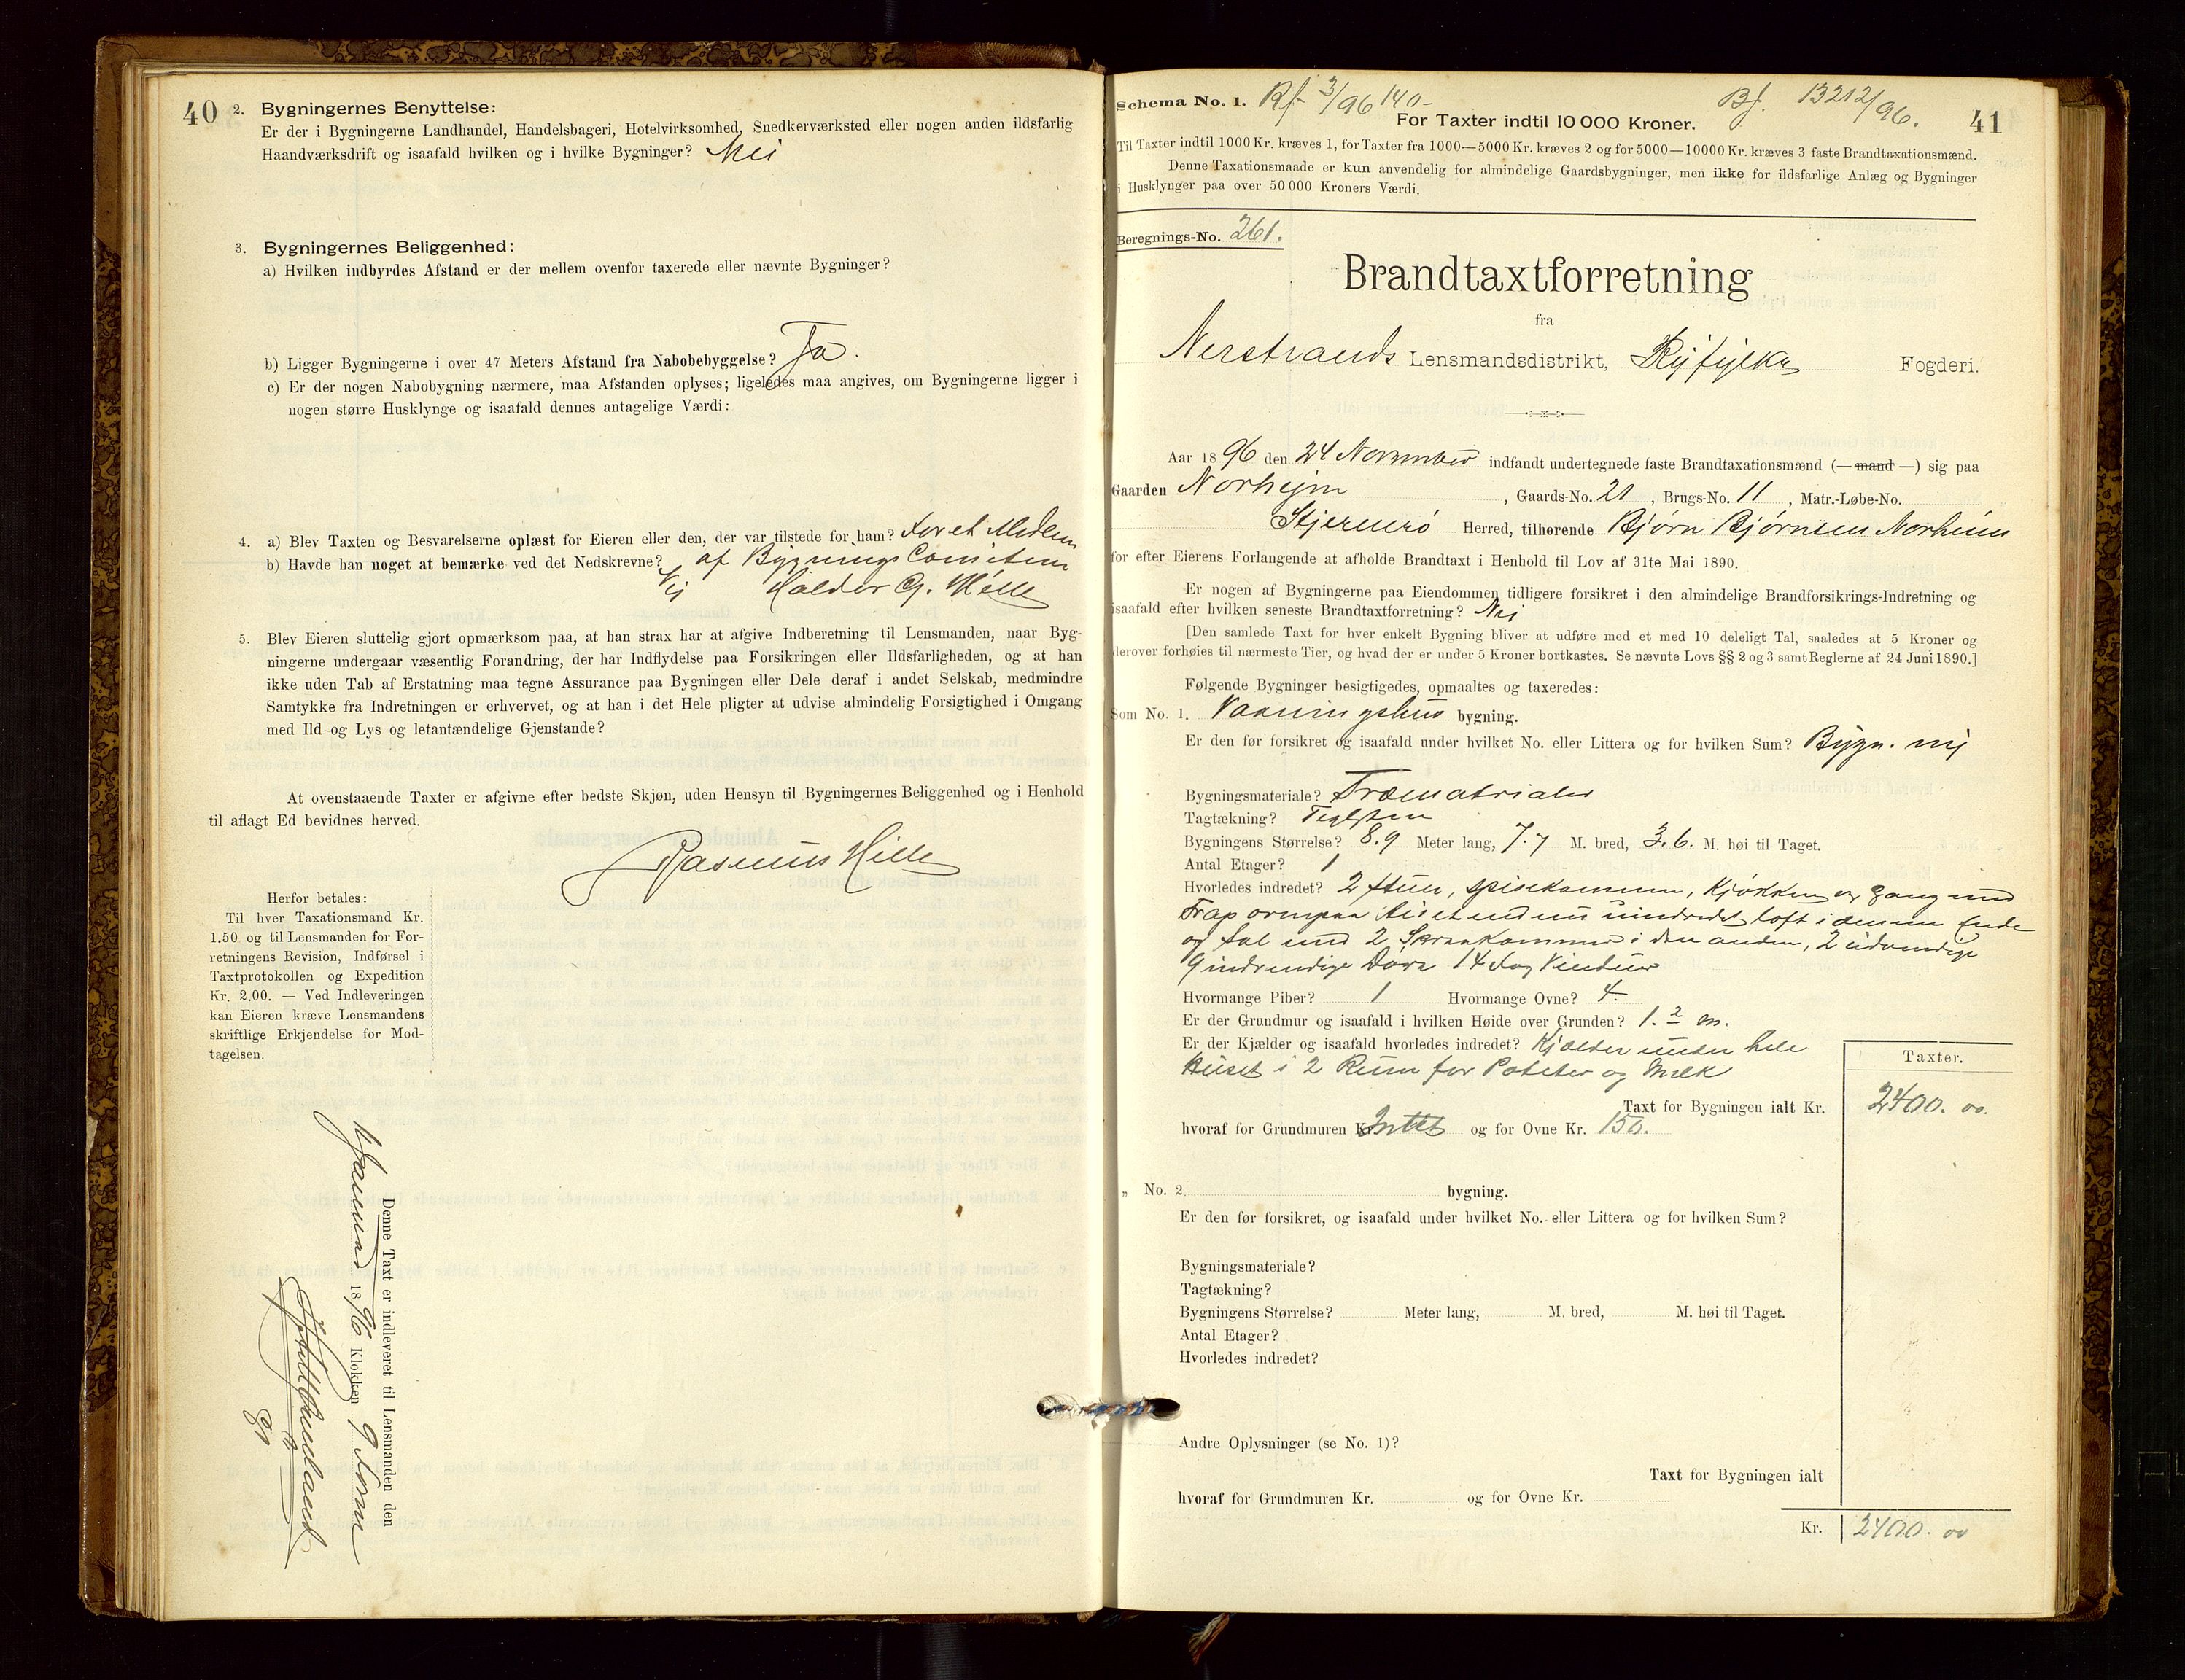 40
2. Bygningernes Benyttelse:
Er der i Bygningerne Landhandel, Handelsbageri, Hotelvirksomhed, Snedkerværksted eller nogen anden ildsfarlig
Haandværksdrift og isaafald hvilken og i hvilke Bygninger? Nei
3. Bygningernes Beliggenhed:
a) Hvilken indbyrdes Afstand er der mellem ovenfor taxerede eller nævnte Bygninger?
b) Ligger Bygningerne i over 47 Meters Afstand fra Nabobebyggelse? Ja.
c) Er der nogen Nabobygning nærmere, maa Afstanden oplyses; ligeledes maa angives, om Bygningerne ligger i
nogen større Husklynge og isaafald dennes antagelige Værdi:
4. a) Blev Taxten og Besvarelserne oplæst for Eieren eller den, der var tilstede for ham? For et Medlem
b) Havde han noget at bemærke ved det Nedskrevne? af Bygnings Comiteen
Nej Halder G. Hille
5. Blev Eieren sluttelig gjort opmærksom paa, at han strax har at afgive Indberetning til Lensmanden, naar Byg-
ningerne undergaar væsentlig Forandring, der har Indflydelse paa Forsikringen eller Ildsfarligheden, og at han
ikke uden Tab af Erstatning maa tegne Assurance paa Bygningen eller Dele deraf i andet Selskab, medmindre
Samtykke fra Indretningen er erhvervet, og at han i det Hele pligter at udvise almindelig Forsigtighed i Omgang
med Ild og Lys og letantændelige Gjenstande?
At ovenstaaende Taxter er afgivne efter bedste Skjøn, uden Hensyn til Bygningernes Beliggenhed og i Henhold
til aflagt Ed bevidnes herved.
Rasmus Hille
Herfor betales:
Til hver Taxationsmand Kr.
1.50 og til Lensmanden for For-
retningens Revision, Indførsel i
Taxtprotokollen og Expedition
Kr. 2.00. — Ved Indleveringen
kan Eieren kræve Lensmandens
skriftlige Erkjendelse for Mod-
tagelsen.
Denne Taxt er indleveret til Lensmanden den
1896 Klokken 9 Form
41
Schema No. 1. Rf. 3/96 140- Bf. 13212/96.
For Taxter indtil 10 000 Kroner.
Til Taxter indtil 1000 Kr. kræves 1, for Taxter fra 1000—5000 Kr. kræves 2 og for 5000—10000 Kr. kræves 3 faste Brandtaxationsmænd.
Denne Taxationsmaade er kun anvendelig for almindelige Gaardsbygninger, men ikke for ildsfarlige Anlæg og Bygninger
i Husklynger paa over 50 000 Kroners Værdi.
Beregnings-No. 261.
Brandtaxtforretning
fra
Nerstrands Lensmandsdistrikt, Ryfylke Fogderi.
Aar 1896 den 24 November indfandt undertegnede faste Brandtaxationsmænd (— mand —) sig paa
Gaarden Norheim, Gaards-No. 21, Brugs-No. 11, Matr.-Løbe-No.
Stjernerö Herred, tilhørende Bjørn Bjørnsen Norheim
for efter Eierens Forlangende at afholde Brandtaxt i Henhold til Lov af 31te Mai 1890.
Er nogen af Bygningerne paa Eiendommen tidligere forsikret i den almindelige Brandforsikrings-Indretning og
isaafald efter hvilken seneste Brandtaxtforretning? Nej
[Den samlede Taxt for hver enkelt Bygning bliver at udføre med et med 10 deleligt Tal, saaledes at 5 Kroner og
derover forhøies til nærmeste Tier, og hvad der er under 5 Kroner bortkastes. Se nævnte Lovs §§ 2 og 3 samt Reglerne af 24 Juni 1890.]
Følgende Bygninger besigtigedes, opmaaltes og taxeredes:
Som No. 1. Vaaningshus bygning.
Er den før forsikret og isaafald under hvilket No. eller Littera og for hvilken Sum? Bygn. nij
Bygningsmateriale? Træmatrialer
Tagtækning? Teglsten
Bygningens Størrelse? 8.9 Meter lang, 7.7 M. bred, 3.6. M. høi til Taget.
Antal Etager? 1
Hvorledes indredet? 2 stuer, spisekammer, Kjøkken og gang med
Trap ovenpaa Huset uindredet loft i denne Ende
og Sal med 2 Skraakammer i den anden, 2 udvendige
9 indvendige Døre 14 fag Vinduer
Hvormange Piber? 1 Hvormange Ovne? 4.
Er der Grundmur og isaafald i hvilken Høide over Grunden? 1.2 m.
Er der Kjælder og isaafald hvorledes indredet? Kjælder under hele
Huset i 2 Rum for Poteter og Melk
Taxter.
Taxt for Bygningen ialt Kr. 2400. 00.
hvoraf for Grundmuren Kr. Intet og for Ovne Kr. 150.
„ No. 2 bygning.
Er den før forsikret, og isaafald under hvilket No. eller Littera og for hvilken Sum?
Bygningsmateriale?
Tagtækning?
Bygningens Størrelse? Meter lang, M. bred, M. høi til Taget.
Antal Etager?
Hvorledes indredet?
Andre Oplysninger (se No. 1)?
Taxt for Bygningen ialt
hvoraf for Grundmuren Kr. og for Ovne Kr.
Kr. 2400. 00